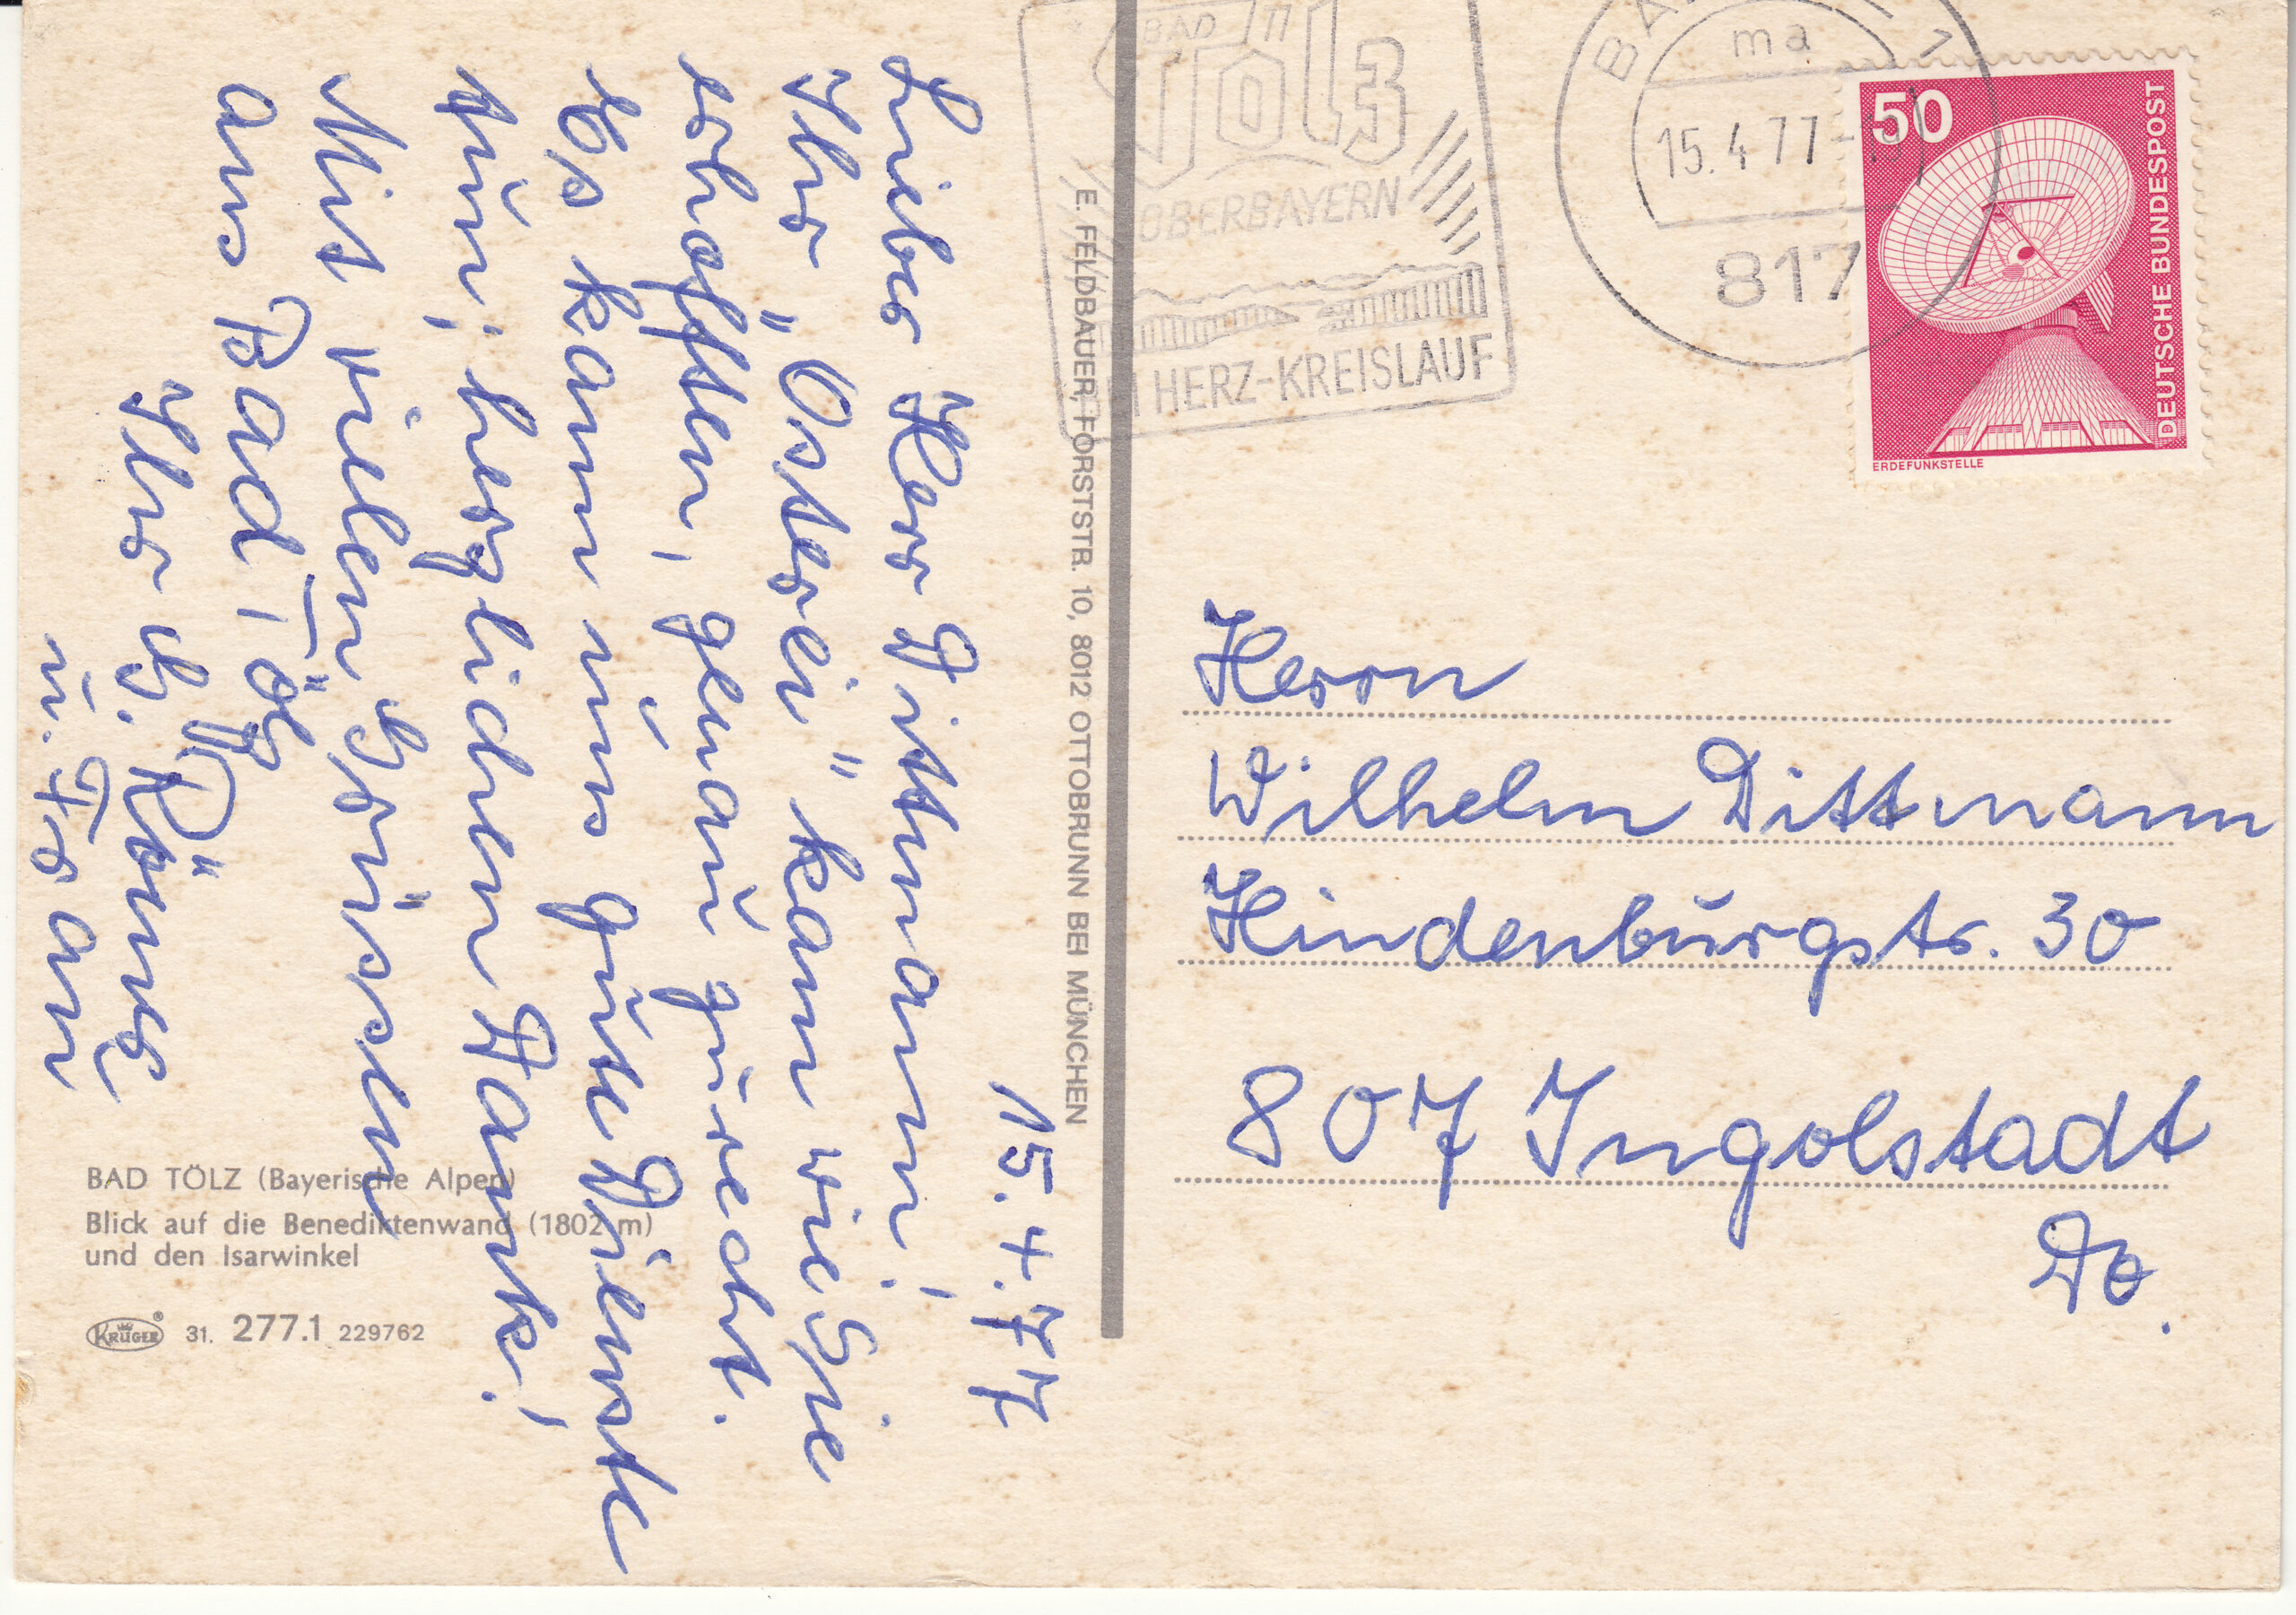 15.4.77
Lieber Herr Dittmann!
Ihr "Osterei" kam wie Sie
erhofften, genau zurecht.
Es kann uns gute Dienste
tun; herzlichen Dank!
Mit vielen Grüssen
aus Bad Tölz
Ihr
u. Frau
BAD TÖLZ (Bayerische Alpen)
Blick auf die Benediktenwand (1802 m)
und den Isarwinkel
KRÜGER® 31. 277.1 229762
E. FELDBAUER, FORSTSTR. 10, 8012 OTTOBRUNN BEI MÜNCHEN
BAD
TÖLZ
OBERBAYERN
HERZ-KREISLAUF
ma
15.4.77
817
50
DEUTSCHE BUNDESPOST
ERDEFUNKSTELLE
Herrn
Wilhelm Dittmann
Hindenburgstr. 30
807 Ingolstadt
Do.